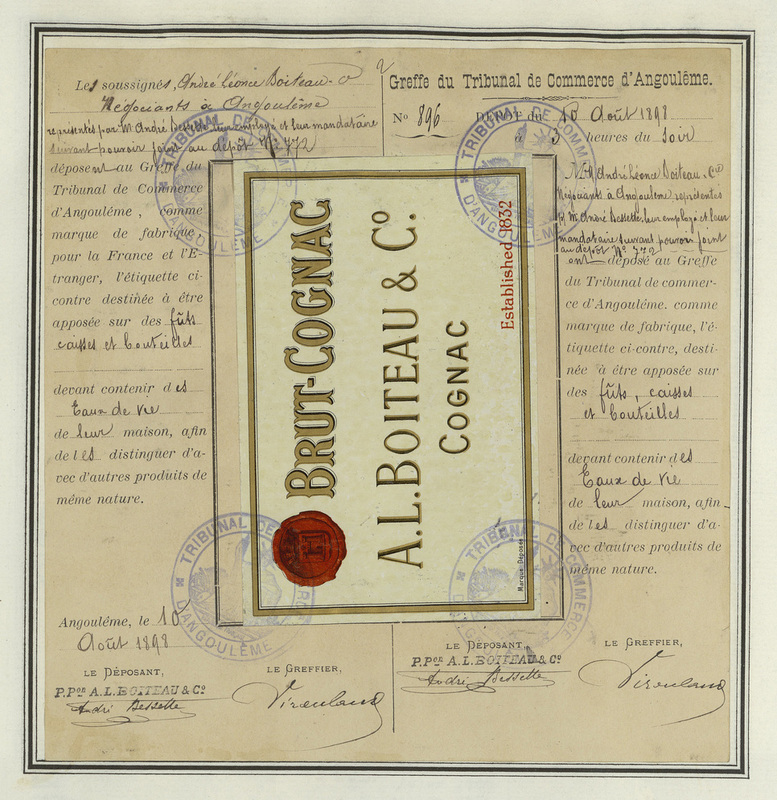 Les soussignés, André Léonce Boiteau & Co
Négociants à Angoulême
représentés par M. André Bessette leur employé et leur mandataire
suivant pouvoir joint au dépôt No 772
déposent au Greffe du
Tribunal de Commerce
d'Angoulême, comme
marque de fabrique,
pour la France et l'É-
tranger, l'étiquette ci-
contre destinée à être
apposée sur des fûts
caisses et bouteilles
devant contenir des
Eaux de vie
de leur maison, afin
de les distinguer d'a-
vec d'autres produits de
même nature.
Angoulême, le 10
Août 1898
LE DÉPOSANT,
P.Pon A.L.BOITEAU & Co
André Bessette
LE GREFFIER,
BRUT-COGNAC
A.L.BOITEAU & Co.
COGNAC
Established 1832
Marque Déposée
2
Greffe du Tribunal de Commerce d'Angoulême.
No 896 DÉPÔT du 10 Août 1898
à 3 heures du Soir
MM. André Léonce Boiteau & Cie
Négociants à Angoulême représentés
p. M. André Bessette, leur employé et leur
mandataire suivant pouvoir joint
au dépôt No 772
ont déposé au Greffe
du Tribunal de commer-
ce d'Angoulême. comme
marque de fabrique, l'é-
tiquette ci-contre, desti-
née à être apposée sur
des fûts, caisses
et bouteilles
devant contenir des
Eaux de vie
de leur maison, afin
de les distinguer d'a-
vec d'autres produits de
même nature.
LE DÉPOSANT,
P.Pon A.L.BOITEAU & Co
André Bessette
LE GREFFIER,
TRIBUNAL DE COMMERCE
D'ANGOULÊME
TRIBUNAL DE COMMERCE
D'ANGOULÊME
TRIBUNAL DE
D'ANGOULÊME
TRIBUNAL DE COMMERCE